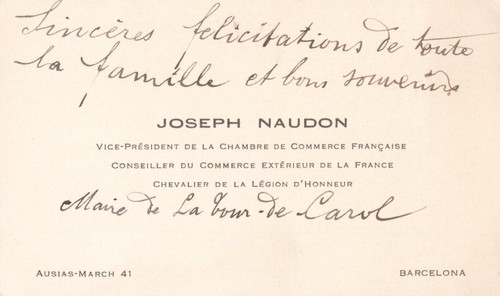 Sincères felicitations de toute
la famille et bons souvenirs
JOSEPH NAUDON
VICE-PRÉSIDENT DE LA CHAMBRE DE COMMERCE FRANÇAISE
CONSEILLER DU COMMERCE EXTÉRIEUR DE LA FRANCE
CHEVALIER DE LA LÉGION D'HONNEUR
Maire de La Tour-de Carol
AUSIAS-MARCH 41
BARCELONA